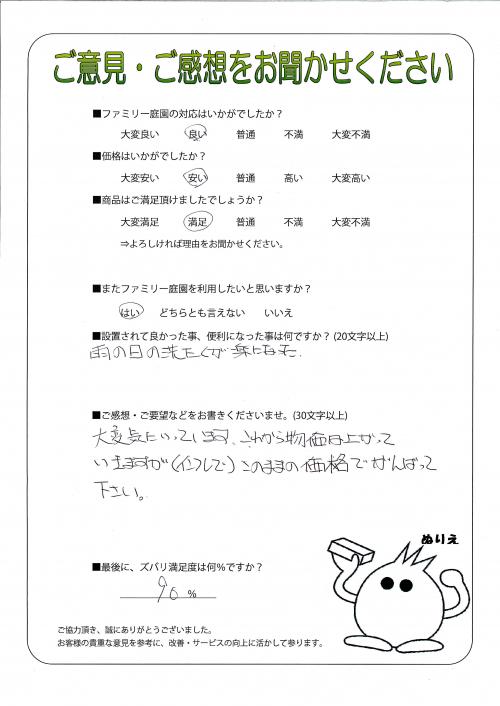 ご意見・ご感想をお聞かせください
■ファミリー庭園の対応はいかがでしたか？
大変良い　良い　普通　不満　大変不満
■価格はいかがでしたか？
大変安い　安い　普通　高い　大変高い
■商品はご満足頂けましたでしょうか？
大変満足　満足　普通　不満　大変不満
⇒よろしければ理由をお聞かせください。
■またファミリー庭園を利用したいと思いますか？
はい　どちらとも言えない　いいえ
■設置されて良かった事、便利になった事は何ですか？(20文字以上)
雨の日の洗たくが楽になった.
■ご感想・ご要望などをお書きくださいませ。(30文字以上)
大変気にいっています、これから物価は上がって
いきますが(インフレで)このままの価格でがんばって
下さい。
ぬりえ
■最後に、ズバリ満足度は何％ですか？
90 %
ご協力頂き、誠にありがとうございました。
お客様の貴重な意見を参考に、改善・サービスの向上に活かして参ります。